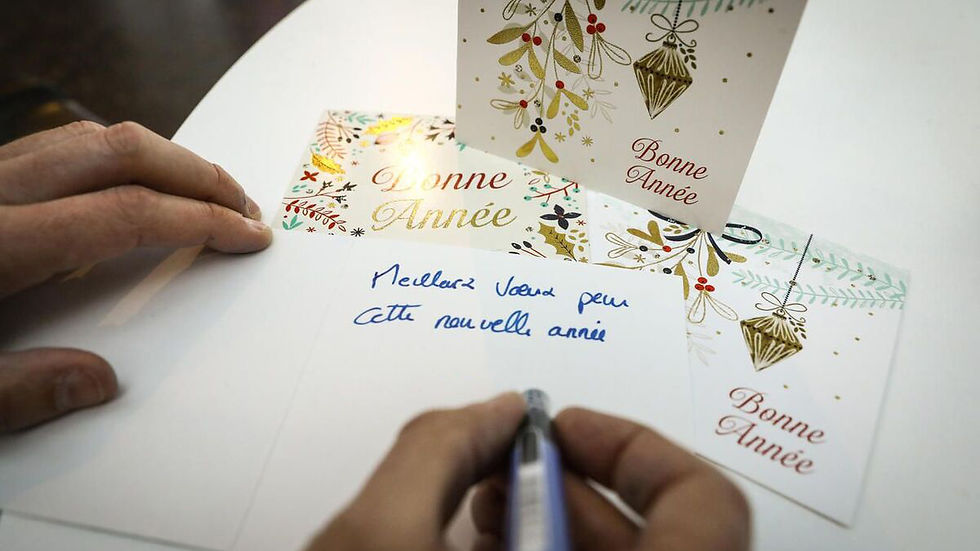 Bonne
Année
Bonne
Année
Meilleurs Vœux pour
cette nouvelle année
Bonne
Année